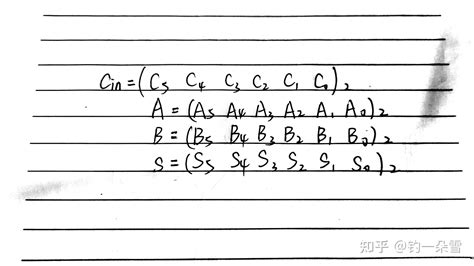 Cin = (C₅ C₄ C₃ C₂ C₁ C₀)₂
A = (A₅ A₄ A₃ A₂ A₁ A₀)₂
B = (B₅ B₄ B₃ B₂ B₁ B₀)₂
S = (S₅ S₄ S₃ S₂ S₁ S₀)₂
知乎 @钓一朵雪